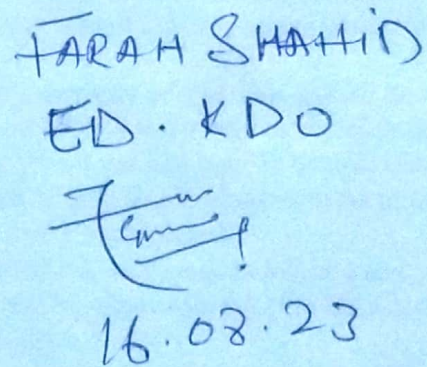 FARAH SHAHID
ED. KDO
16.08.23